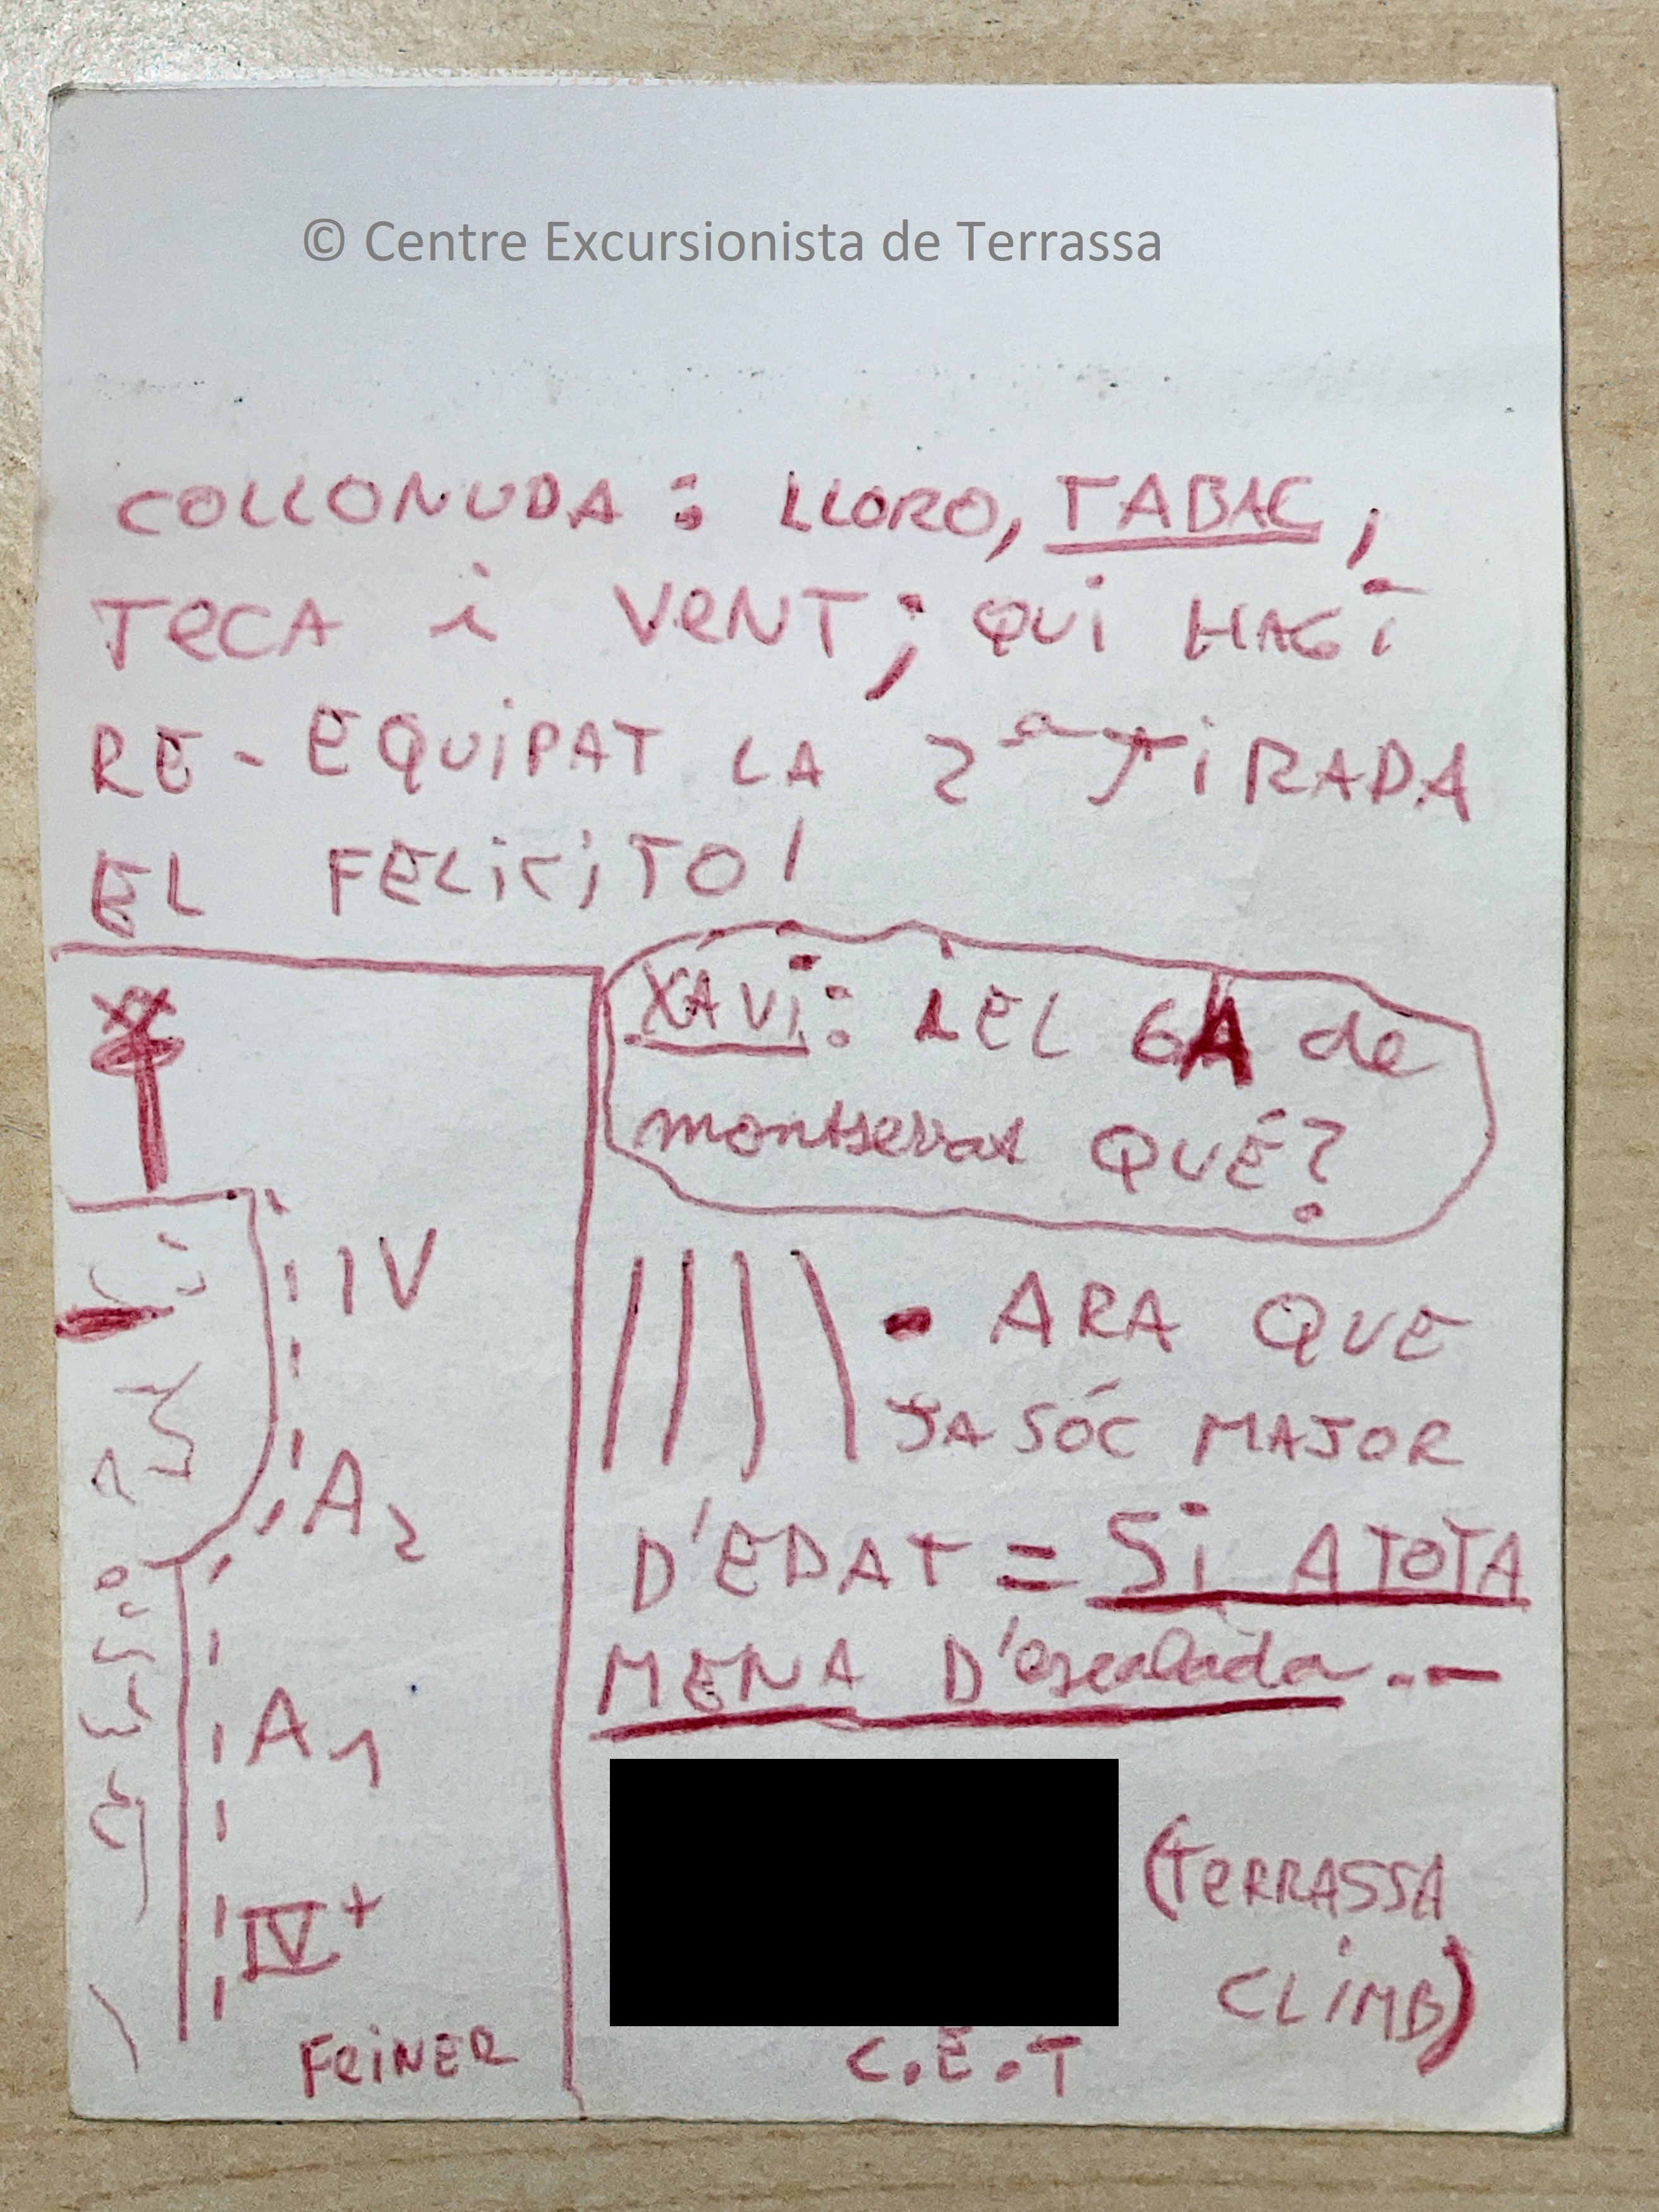 © Centre Excursionista de Terrassa
COLLONUDA: LLORO, TABAC,
TECA i VENT; QUI HAGI
RE-EQUIPAT LA 2ª TIRADA
EL FELICITO!
XAVI: i EL 6A de
montserrat QUÉ?
• ARA QUE
JA SÓC MAJOR
D'EDAT = Si A TOTA
MENA D'escalada.--
IV
A2
A1
IV+
FEINER
(TERRASSA
CLIMB)
C.E.T